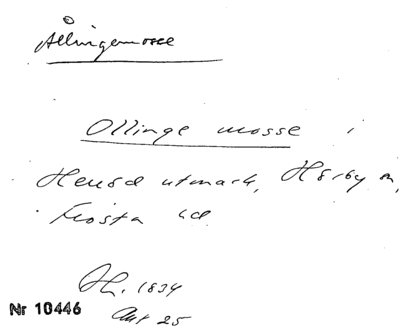 Ållingemosse
Ollinge mosse i
Heusa utmark, Hörby sn,
Frosta hd
Hl. 1834
Akt 25
Nr 10446